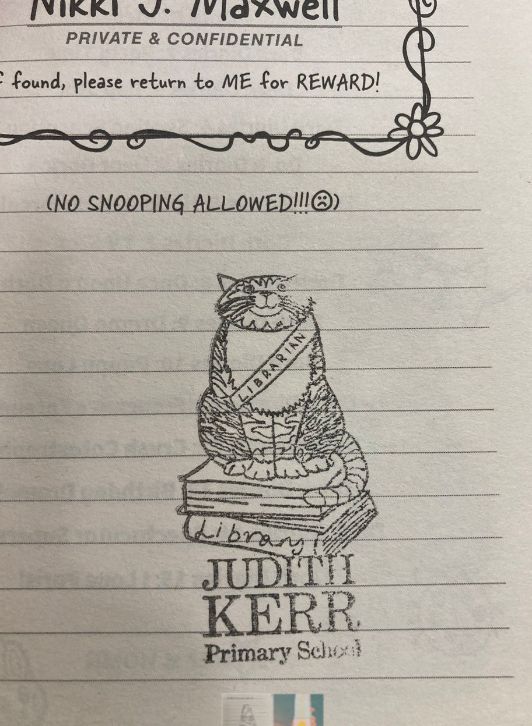 Nikki J. Maxwell
PRIVATE & CONFIDENTIAL
found, please return to ME for REWARD!
(NO SNOOPING ALLOWED!!!☹)
LIBRARIAN
Library
JUDITH
KERR
Primary School